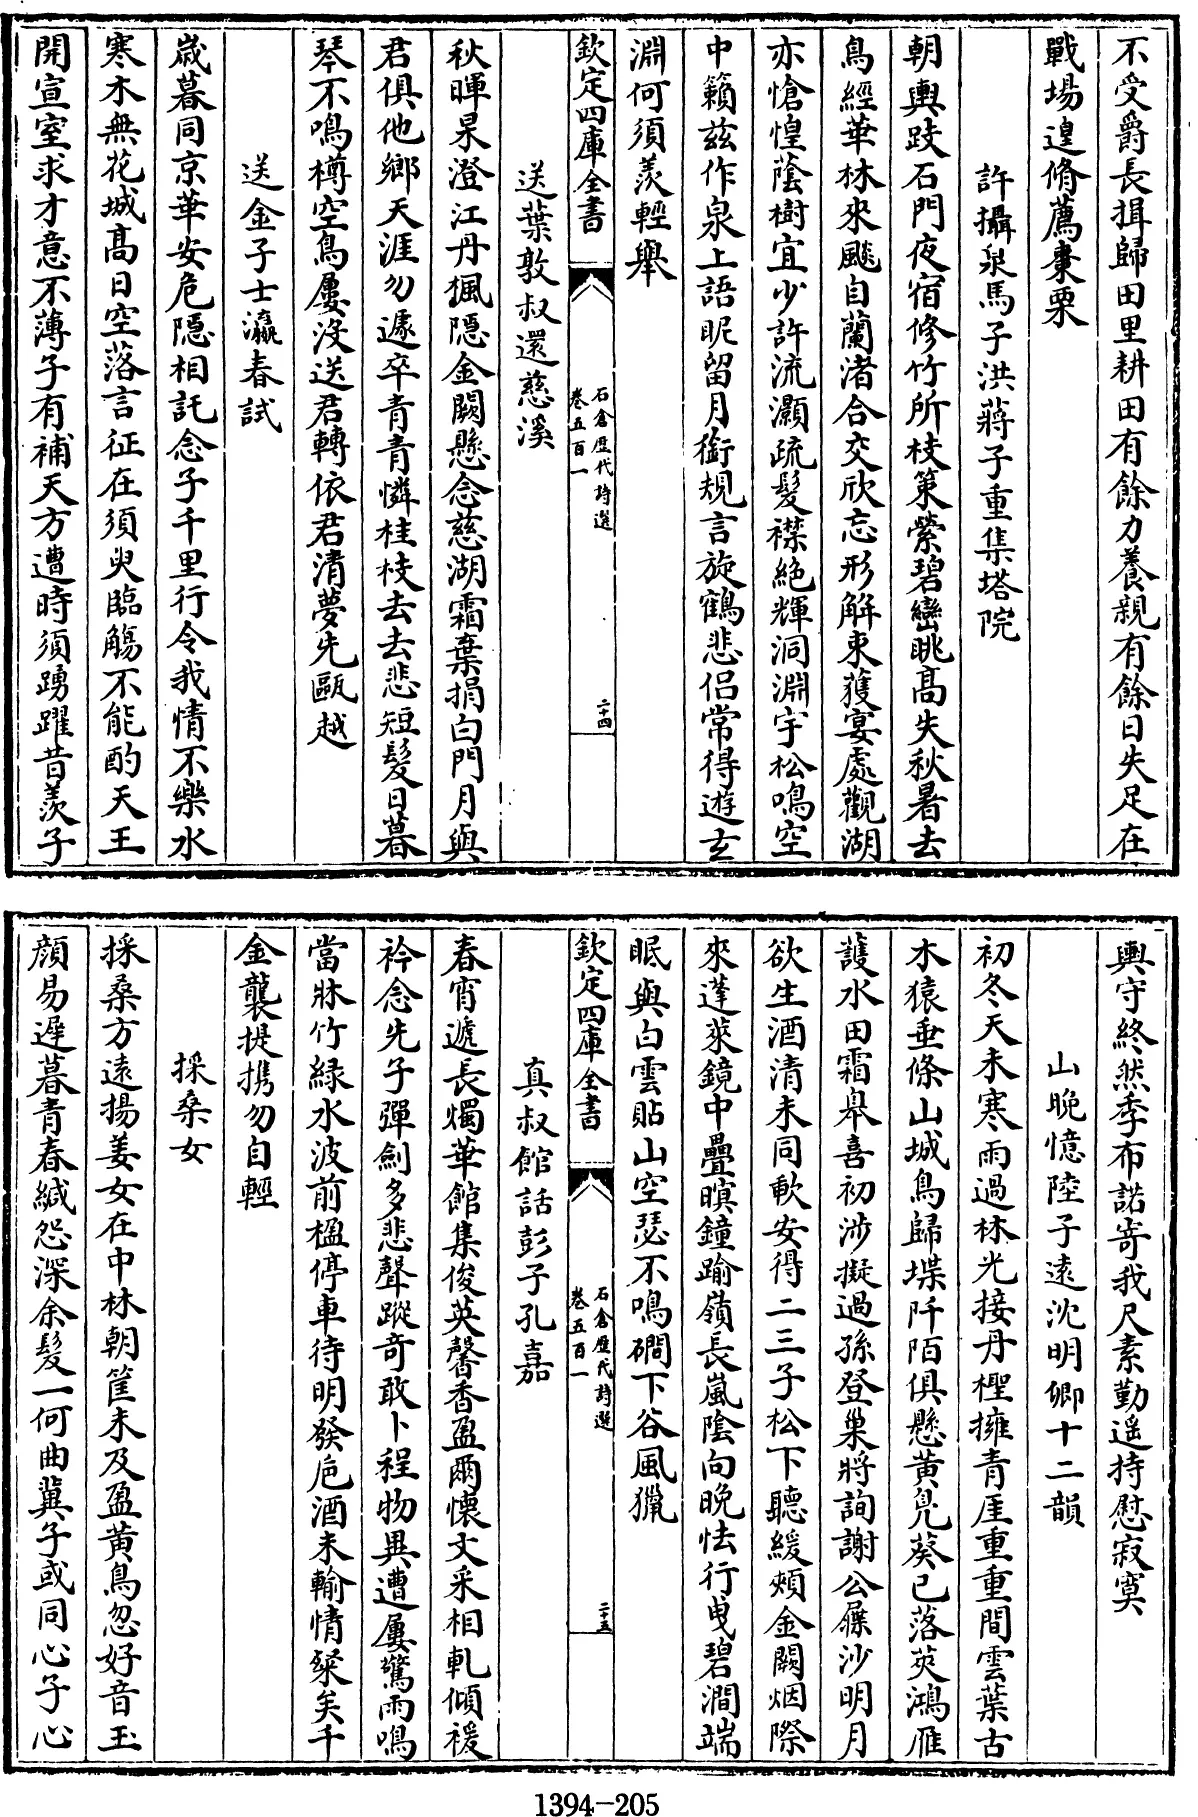 不受爵長揖歸田里耕田有餘力養親有餘日失足在
戰場遑脩薦棗栗
許攝泉馬子洪蔣子重集塔院
朝輿跂石門夜宿修竹所枝策縈碧巒眺高失秋暑去
鳥經華林來颸自蘭渚合交欣忘形解束獲宴處觀湖
亦愴惶蔭樹宜少許流灝疏髮襟絶輝洞淵宇松鳴空
中籟兹作泉上語昵留月銜規言旋鶴悲侣常得遊玄
淵何須羨輕舉
欽定四庫全書
石倉歷代詩選
卷五百一
二十四
送葉敦叔還慈溪
秋暉杲澄江丹楓隱金闕懸念慈湖霜葉捐白門月與
君俱他鄉天涯勿遽卒青青憐桂枝去去悲短髮日暮
琴不鳴樽空鳥屢没送君轉依君清夢先甌越
送金子士瀛春試
歲暮同京華安危隱相託念子千里行令我情不樂水
寒木無花城高日空落言征在須臾臨觴不能酌天王
開宣室求才意不薄子有補天方遭時須踴躍昔羨子
輿守終然季布諾寄我尺素勤遥持慰寂寞
山晚憶陸子遠沈明卿十二韻
初冬天未寒雨過林光接丹檉擁青厓重重間雲葉古
木猿垂條山城鳥歸堞阡陌俱懸黄凫葵已落莢鴻雁
護水田霜皋喜初涉擬過孫登巢將詢謝公屧沙明月
欲生酒清未同軟安得二三子松下聽緩頰金闕烟際
來蓬萊鏡中疊暝鐘踰嶺長嵐陰向晚怯行曳碧澗端
眠與白雲貼山空瑟不鳴磵下谷風獵
欽定四庫全書
石倉歷代詩選
卷五百一
二十五
真叔館話彭子孔嘉
春宵遞長燭華館集俊英馨香盈爾懷文采相軋傾禐
衿念先子彈劍多悲聲蹤奇敢卜程物異遭屢驚雨鳴
當牀竹緑水波前楹停車待明發巵酒未輸情粲矣千
金襲提携勿自輕
採桑女
採桑方遠揚姜女在中林朝筐未及盈黄鳥忽好音玉
顔易遲暮青春緘怨深余髮一何曲冀子或同心子心
1394-205